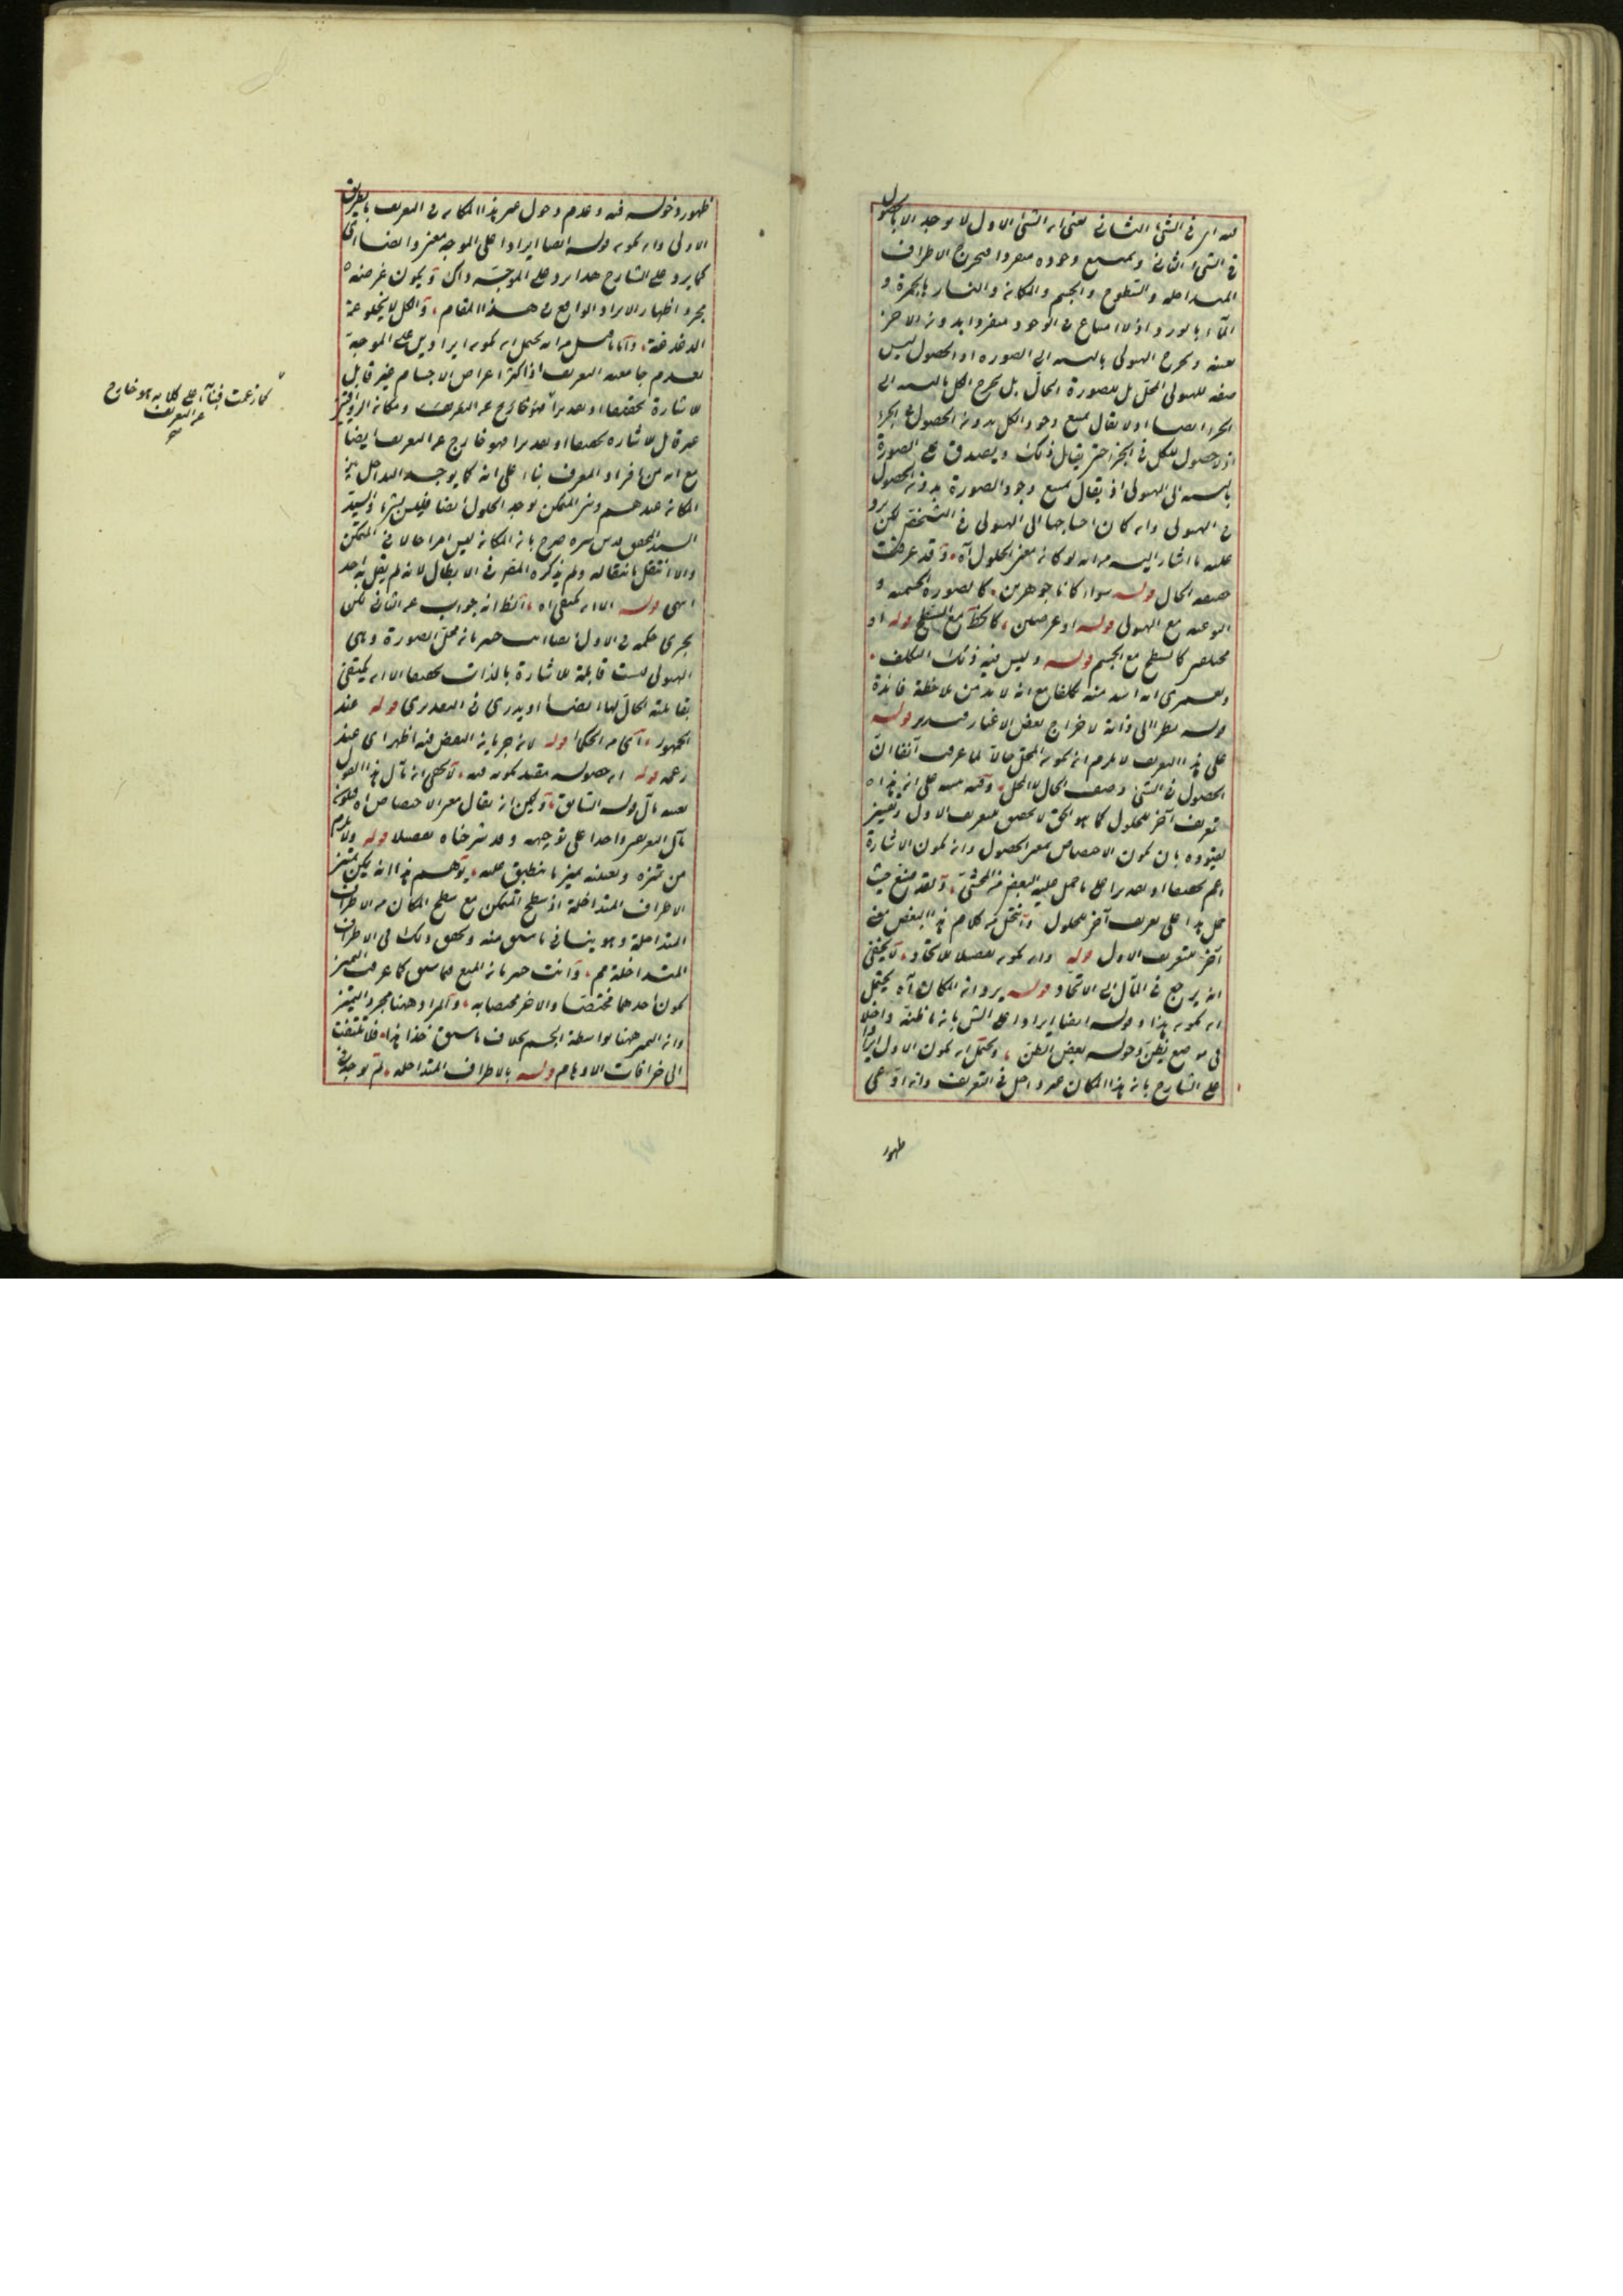 فيه اى فى الشئ الثانى يعنى ان الشئ الاول لا يوجد الا بالحصول
فى الشئ الثانى ويمتنع وجوده منفردا فيخرج الاطراف
المتداخله والسطوح والجسم والمكان والنار بالجمرة و
الماء بالورد اذ لا امتناع فى الوجود منفردا بدون الاخر
ويخرج الهيولى بالنسبه الى الصوره اذ الحصول ليس
صفه للهيولى المحل بل للصورة الحال بل يخرج الكل بالنسبه الى
الجزء ايضا اذ لا يقال يمتنع وجود الكل بدون الحصول فى الجزء
اذ لا حصول للكل فى الجزء حتى يقال ذلك ويصدق على الصورة
بالنسبه الى الهيولى اذ يقال يمتنع وجود الصورة بدون الحصول
فى الهيولى وان كان احتياجها الى الهيولى فى التشخص لكن يرد
عليه ما اشار اليه من انه لو كان معنى الحلول آه وقد عرفت
الحال قوله سواء كانا جوهرين كالصورة الجسميه و
النوعيه مع الهيولى قوله او عرضين كالخط مع السطح قوله او
مختلفين كالسطح مع الجسم قوله وليس فيه ذلك التكلف
ولعمرى انه اشد منه تكلفا مع انه لابد من ملاحظة فائدة
قوله نظرا الى ذاته لاخراج بعض الاغيار قوله
على هذا التعريف لا يلزم ان يكون المحل حالا لما عرفت آنفا ان
الحصول فى الشئ وصف الحال لا المحل وفيه على ان هذا
تعريف آخر للحلول كما هو الحق لا للتعريف الاول
بان يكون الاختصاص بمعنى الحصول وان يكون الاشارة
اعم تحقيقا او تقديرا على ما حمل عليه البعض من المحشى حيث
حمل هذا على تعريف آخر للحلول كلام هذا البعض معنى
آخر للتعريف الاول قوله وان يكون تفصيلا للاتحاد لا يخفى
انه يرجع فى المآل الى الاتحاد قوله يرد ان المكان آه يحتمل
ان يكون هذا وقوله ايضا ايرادا على الش بان ما ظنه داخلا
فى موضع يظن دخوله بعض الظن ويحتمل ان يكون الاول ايرادا
على الشارح بان هذا المكان غير داخل فى التعريف وانه ادعى
ظهور
ظهور دخوله فيه وعدم دخول غير هذا المكان فى التعريف بالطريق
الاولى وان يكون قوله ايضا ايرادا على الموجه بمعنى وايضا اى
كما يرد على الشارح هذا يرد على الموجه ذاك ويكون غرضه
مجرد اظهار الايراد الواقع فى هذا المقام والكل لا يخلو عن
الدغدغة واما ما قيل من انه يحتمل ان يكون ايرادين على الموجه
بعدم جامعيه التعريف اذ اكثر اعراض الاجسام غير قابل
للاشارة تحقيقا او تقديرا فهو خارج عن التعريف ومكان
غير قابل للاشاره تحقيقا او تقديرا فهو خارج عن التعريف ايضا
مع انه من افراد المعرف بناء على انه كما يوجد التداخل بين
المكان عندهم وبين المتمكن يوجد الحلول ايضا فليس بشئ
السيد المحقق قدس سره صرح بان المكان ليس امرا حالا فى المتمكن
والا انتقل بانتقاله ولم يذكره المص فى الابطال لانه لم يقل به احد
انتهى قوله الا ان يكتفى اه الظ انه جواب عن الثانى لكن
يجرى حكمه فى الاول ايضا انت خبير بان محل الصورة وهى
الهيولى ليست قابلة للاشارة بالذات تحقيقا الا ان يكتفى
بقابلية الحال لها ايضا قوله عند
الجمهور اى من الحكماء قوله لان جريان البعض فيه اظهر اى عند
زعمه قوله ان حصوله مقيد بكونه فيه لا يخفى ان مآل هذا القول
بعينه مآل قوله السابق ويمكن ان يقال معنى الاختصاص اه فيكون
مآل التعريفين واحدا على توجيهه وقد شرحناه تفصيلا قوله ولا يلزم
من تميزه وتعينه تميز ما ينطبق عليه يوهم هذا انه يكون تميز
الاطراف المتداخلة اذ سطح المتمكن مع سطح المكان من الاطراف
المتداخلة وهو ينافى ما سبق منه وتحقق ذلك فى الاطراف
المتداخلة مم وانت خبير بان المنع فيما سبق كما عرفت التميز
بكون احدهما مختصا والاخر مختصا به والمراد ههنا مجرد التميز
وان التميز ههنا بواسطة الجسم بخلاف ما سبق خذ هذا فلا تلتفت
الى خرافات الاوهام قوله بالاطراف المتداخله ثم
كما زعمت بناء على كلا به هو خارج
عن التعريف
صح